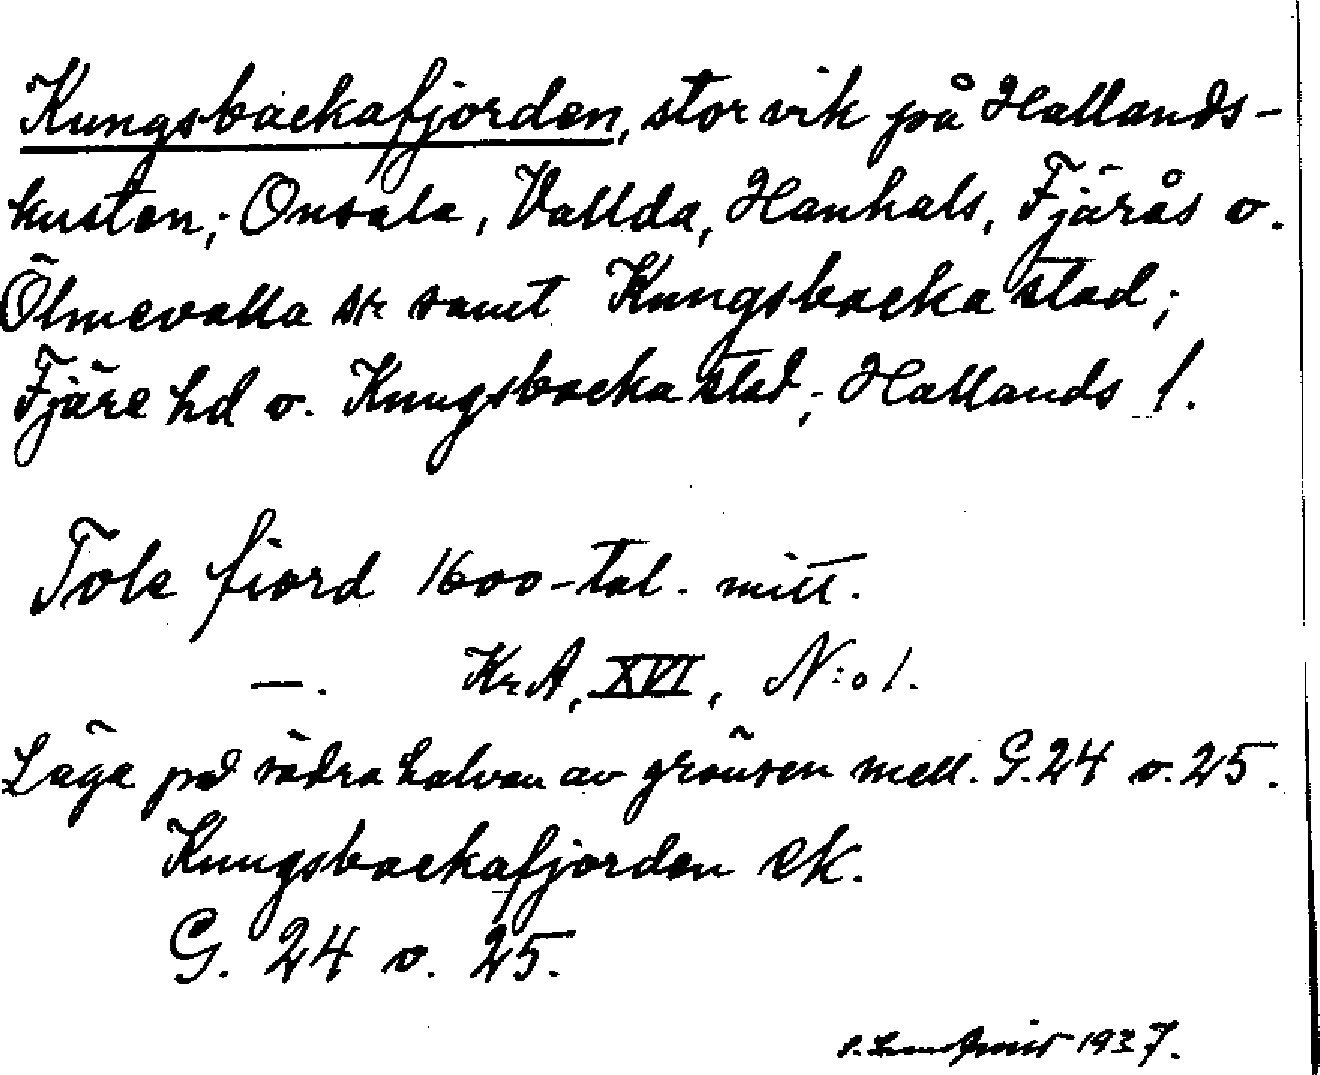 Kungsbackafjorden, stor vik på Hallands-
kusten; Onsala, Vallda, Hanhals, Fjärås o.
Ölmevalla sk samt Kungsbacka stad;
Fjäre hd o. Kungsbacka stad; Hallands l.
Tole fiord 1600-tal. mitt.
—. KrA, XVI, N:o 1.
Läge på södra halvan av gränsen mell. G. 24 o. 25.
Kungsbackafjorden ek.
G. 24 o. 25.
1937.